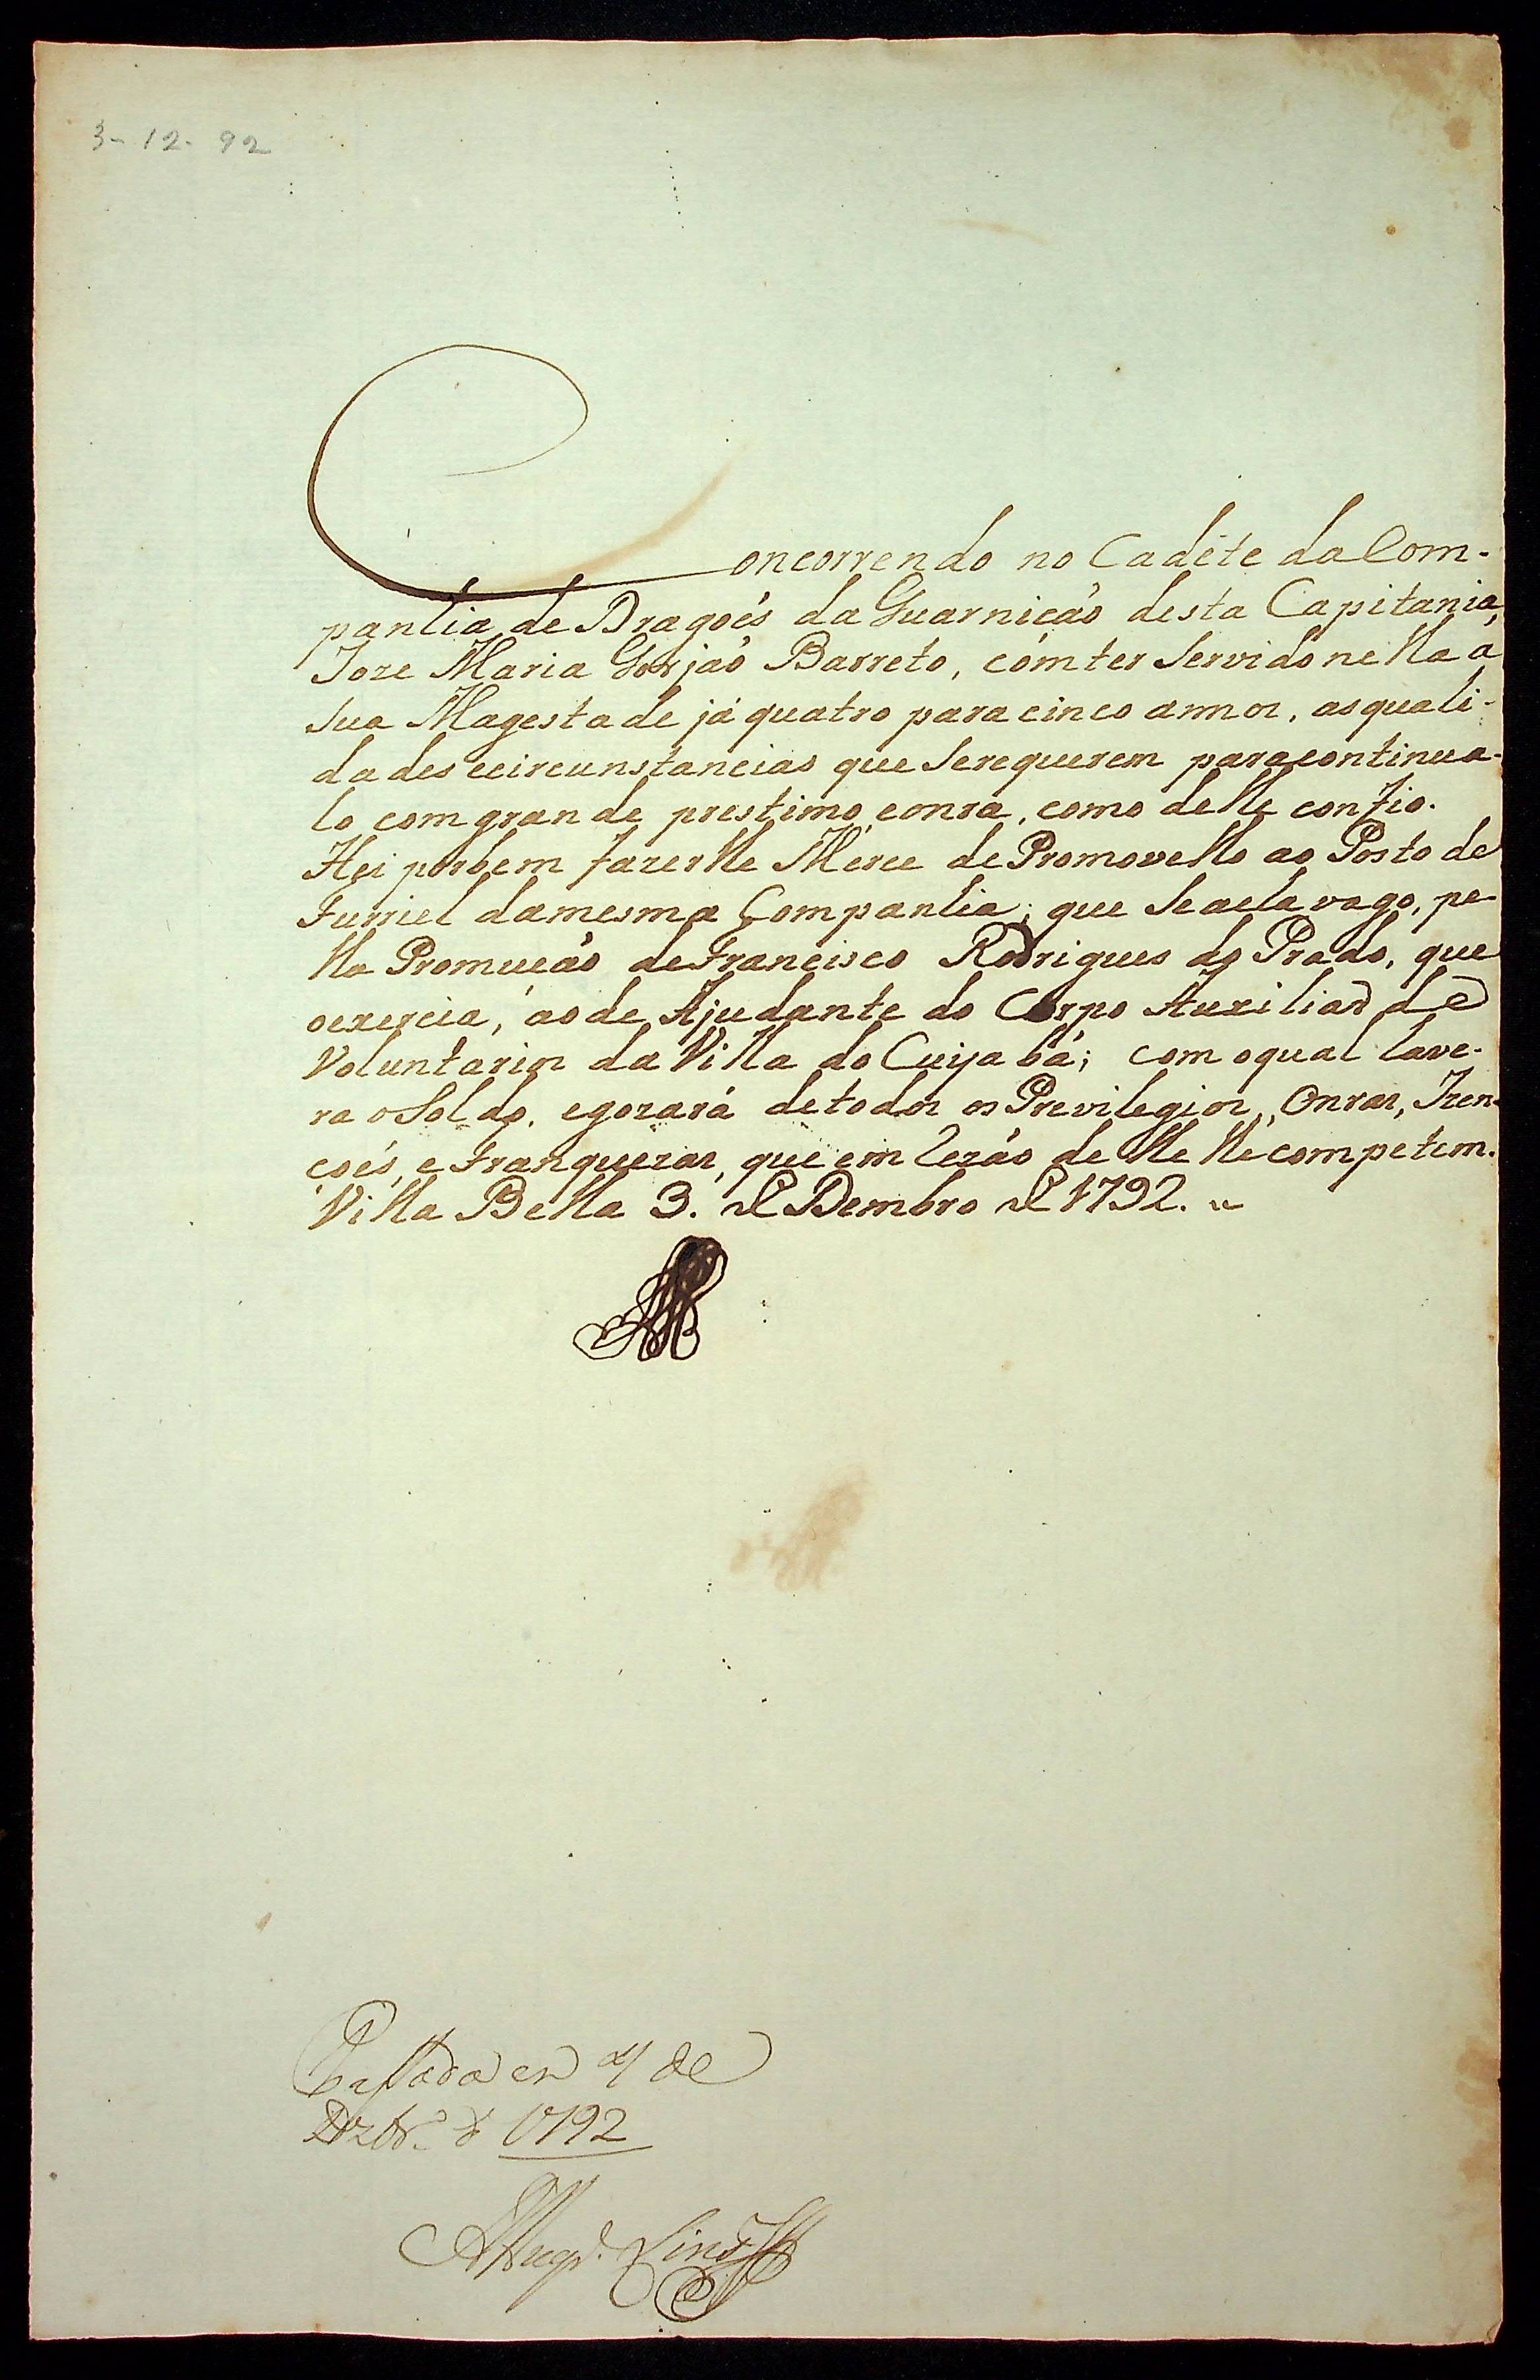 3-12-92
Concorrendo no Cadête da Com-
panhia de Dragoẽs da Guarnicáo desta Capitania,
Joze Maria Gorjaó Barreto, cómter Servido nella a
Sua Magestade já quatro para cinco annos, as quali-
dades ecircunstancias que Serequerem paracontinua-
lo comgrande prestimo, eonra, como delle confio.
Hei porbem fazerlhe Merce de Promovello ao Posto de
Furriel damesma Companhia; que Seacha vago, pe-
lla Promucáo deFrancisco Rodrigues do Prado, que
oexercia, aode Ajudante do Corpo Auxiliar de
Voluntarios da Villa do Cuyabá; com oqual have-
ra oSoldo, egozará detodos os Previlegios, Onras, Izen-
coẽs, e Franquezas, que em Rezáo delle lhe competem.
Villa Bella 3. de Dezembro de 1792.
em 4 de
Dezbrº de 1792